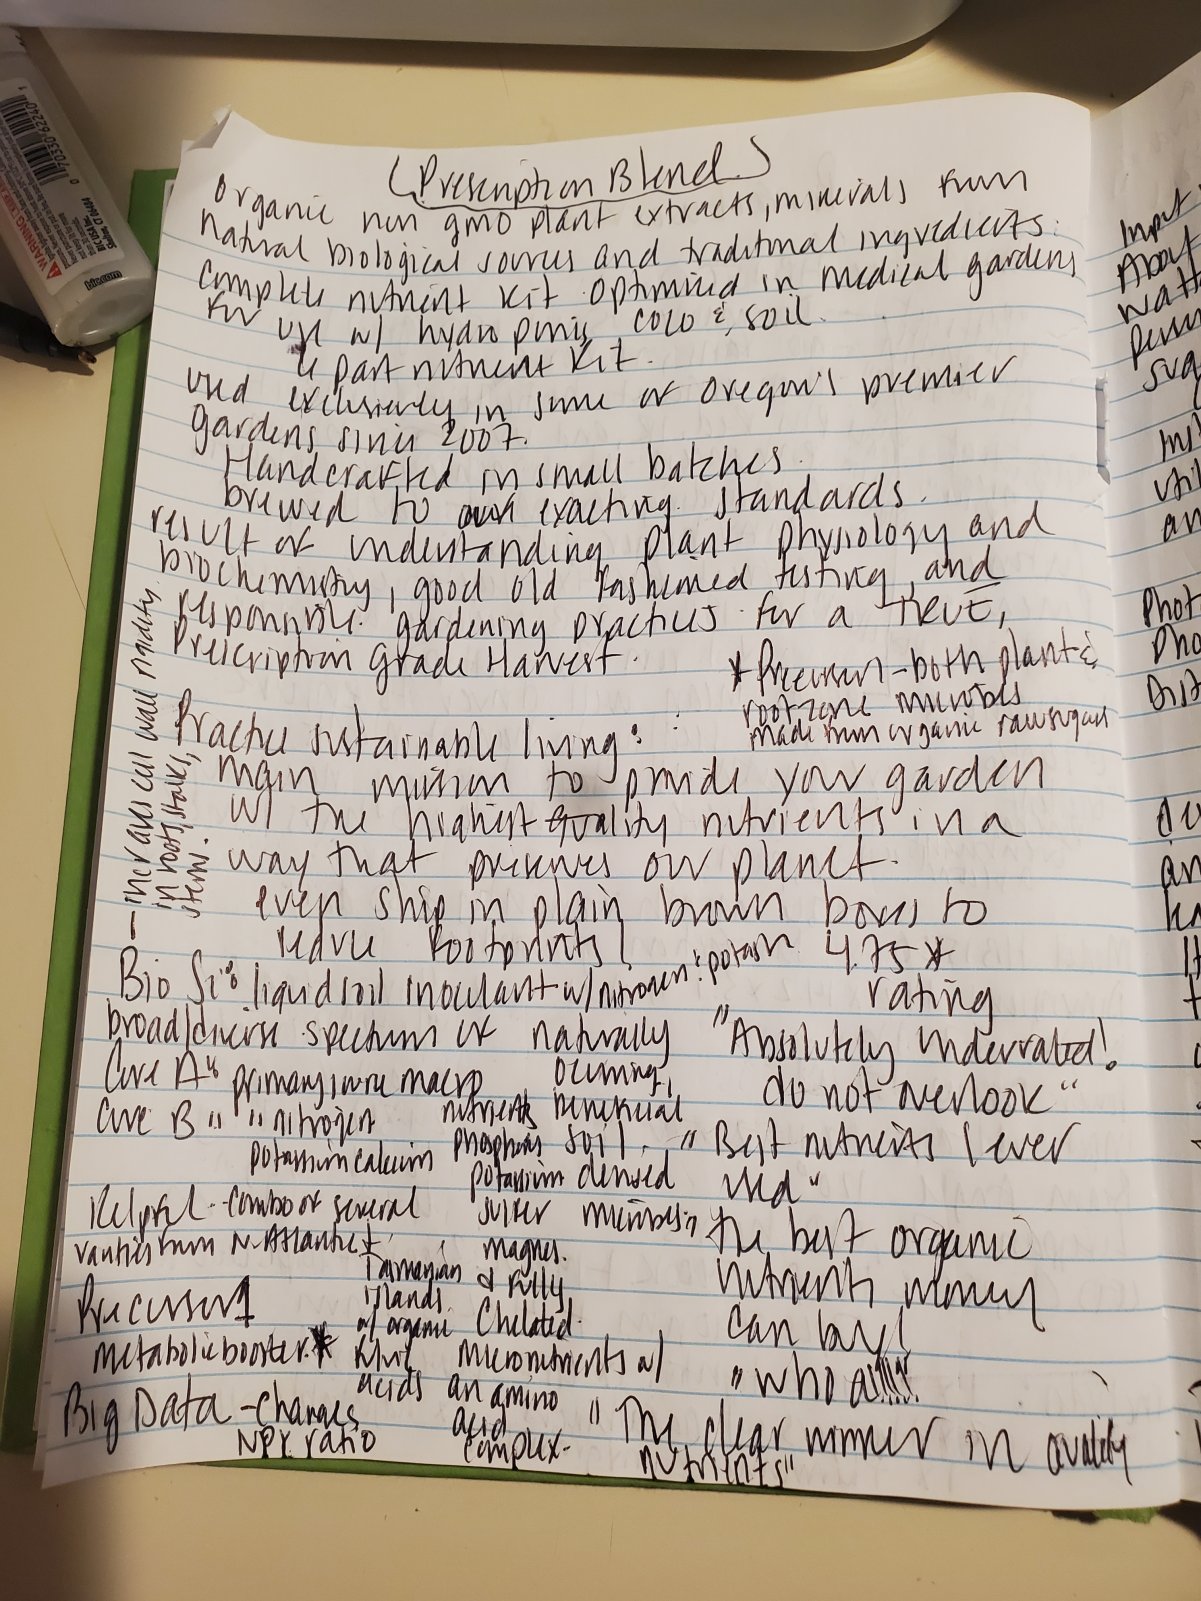 (Prescription Blend)
organic non gmo plant extracts, minerals from
natural biological sources and traditional ingredients.
complete nutrient kit optimized in medical gardens
for use w/ hydroponic, coco &, soil.
part nutrient kit.
used exclusively in some of Oregon's premier
gardens since 2007.
Handcrafted in small batches.
brewed to exacting standards.
result of understanding plant physiology and
biochemistry, good old fashioned testing, and
responsible gardening practices for a TRUE,
Prescription Grade Harvest.
* Precursor - both plant &
root zone microbes
made from organic raw sugars
Practice sustainable living:
main mission to provide your garden
w/ the highest quality nutrients in a
way that preserves our planet.
even ship in plain brown boxes to
reduce footprints!
— increases cell wall rigidity
in roots, stalks,
stems.
Bio Si: liquid soil inoculant w/ nitrogen & potash
broad/diverse spectrum of naturally
occurring,
beneficial
soil
derived
microbes
Core A: primary core macro
nutrients
phosphorus
potassium
sulfer
magnes.
& Fully
Chelated
micronutrients w/
an amino
acid
complex-
Core B " " nitrogen
potassium calcium
Kelpful - combo of several
varities from N. Atlantic &
Tasmanian
islands.
w/ organic
acids
Precursor
metabolic booster *
Big Data - changes
NPK ratio
4.75 *
rating
"Absolutely underrated!
do not overlook"
"Best nutrients I ever
used"
"the best organic
nutrients money
can buy!
"whoa!!!!!
"The clear winner in quality
nutrients"
Input
About
Phot
Pho
Dist
WARNING
BIC USA Inc.
Shelton, CT 06484
0 70330 62240